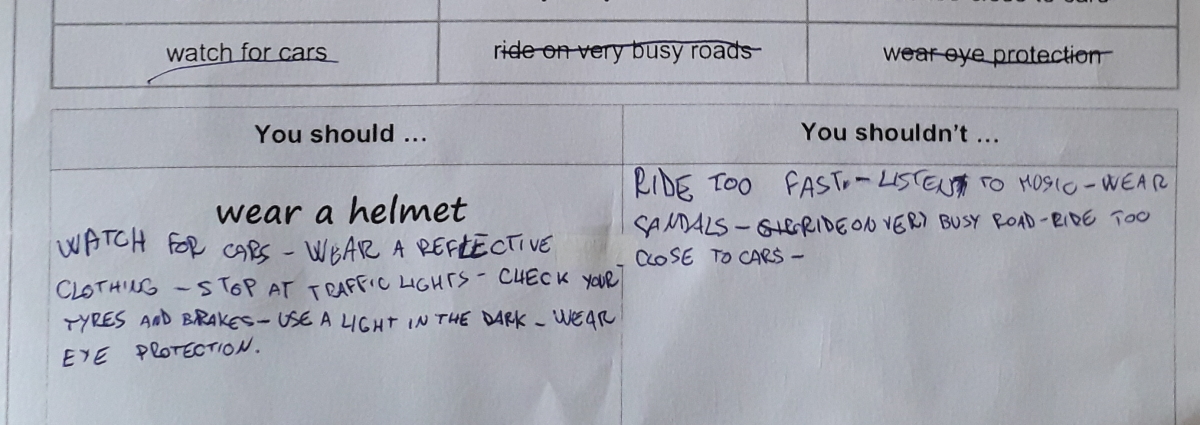 watch for cars
ride on very busy roads
wear eye protection
You should ...
You shouldn't ...
wear a helmet
WATCH FOR CARS - WEAR A REFLECTIVE
CLOTHING - STOP AT TRAFFIC LIGHTS - CHECK YOUR
TYRES AND BRAKES - USE A LIGHT IN THE DARK - WEAR
EYE PROTECTION.
RIDE TOO FAST - LISTEN TO MOSIC - WEAR
SANDALS - RIDE ON VERY BUSY ROAD - RIDE TOO
CLOSE TO CARS -